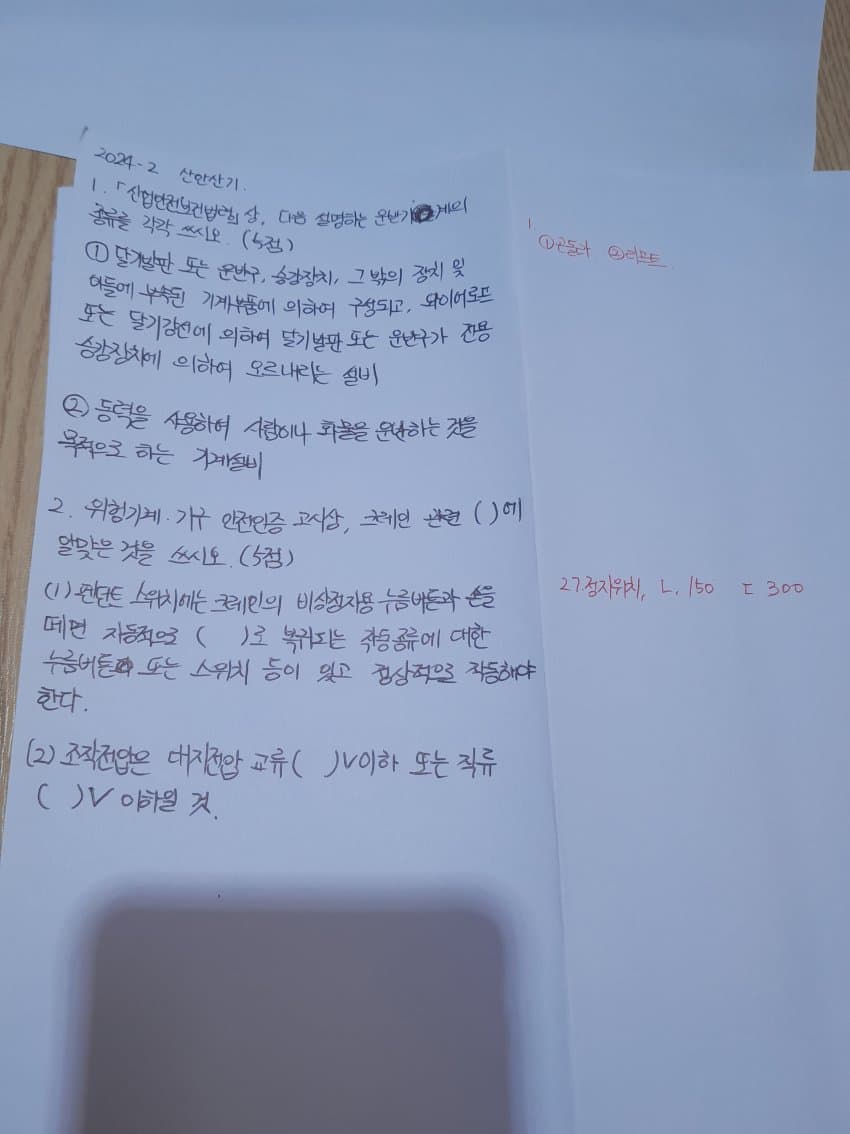 2024-2 산안산기.
1. 「산업안전보건법령」상, 다음 설명하는 운반기계의
종류를 각각 쓰시오. (5점)
① 달기발판 또는 운반구, 승강장치, 그 밖의 장치 및
이들에 부속된 기계부품에 의하여 구성되고, 와이어로프
또는 달기강선에 의하여 달기발판 또는 운반구가 전용
승강장치에 의하여 오르내리는 설비
② 동력을 사용하여 사람이나 화물을 운반하는 것을
목적으로 하는 기계설비
1.
①곤돌라 ②리프트
2. 위험기계·기구 안전인증 고시상, 크레인 관련 ( )에
알맞은 것을 쓰시오. (5점)
(1) 펜던트 스위치에는 크레인의 비상정지용 누름버튼과 손을
떼면 자동적으로 ( )로 복귀되는 작동종류에 대한
누름버튼 또는 스위치 등이 있고 정상적으로 작동해야
한다.
(2) 조작전압은 대지전압 교류( )V이하 또는 직류
( )V 이하일 것.
2ㄱ.정지위치, ㄴ. 150 ㄷ 300